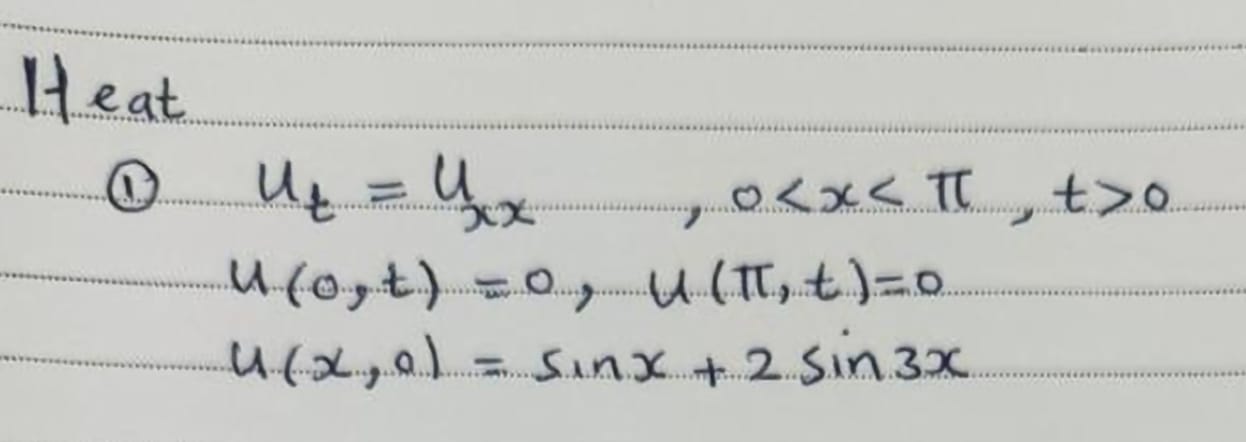 Heat
① u_t = u_xx , 0<x<π , t>0
u(0,t) = 0, u(π,t)=0
u(x,0) = sinx + 2 sin3x